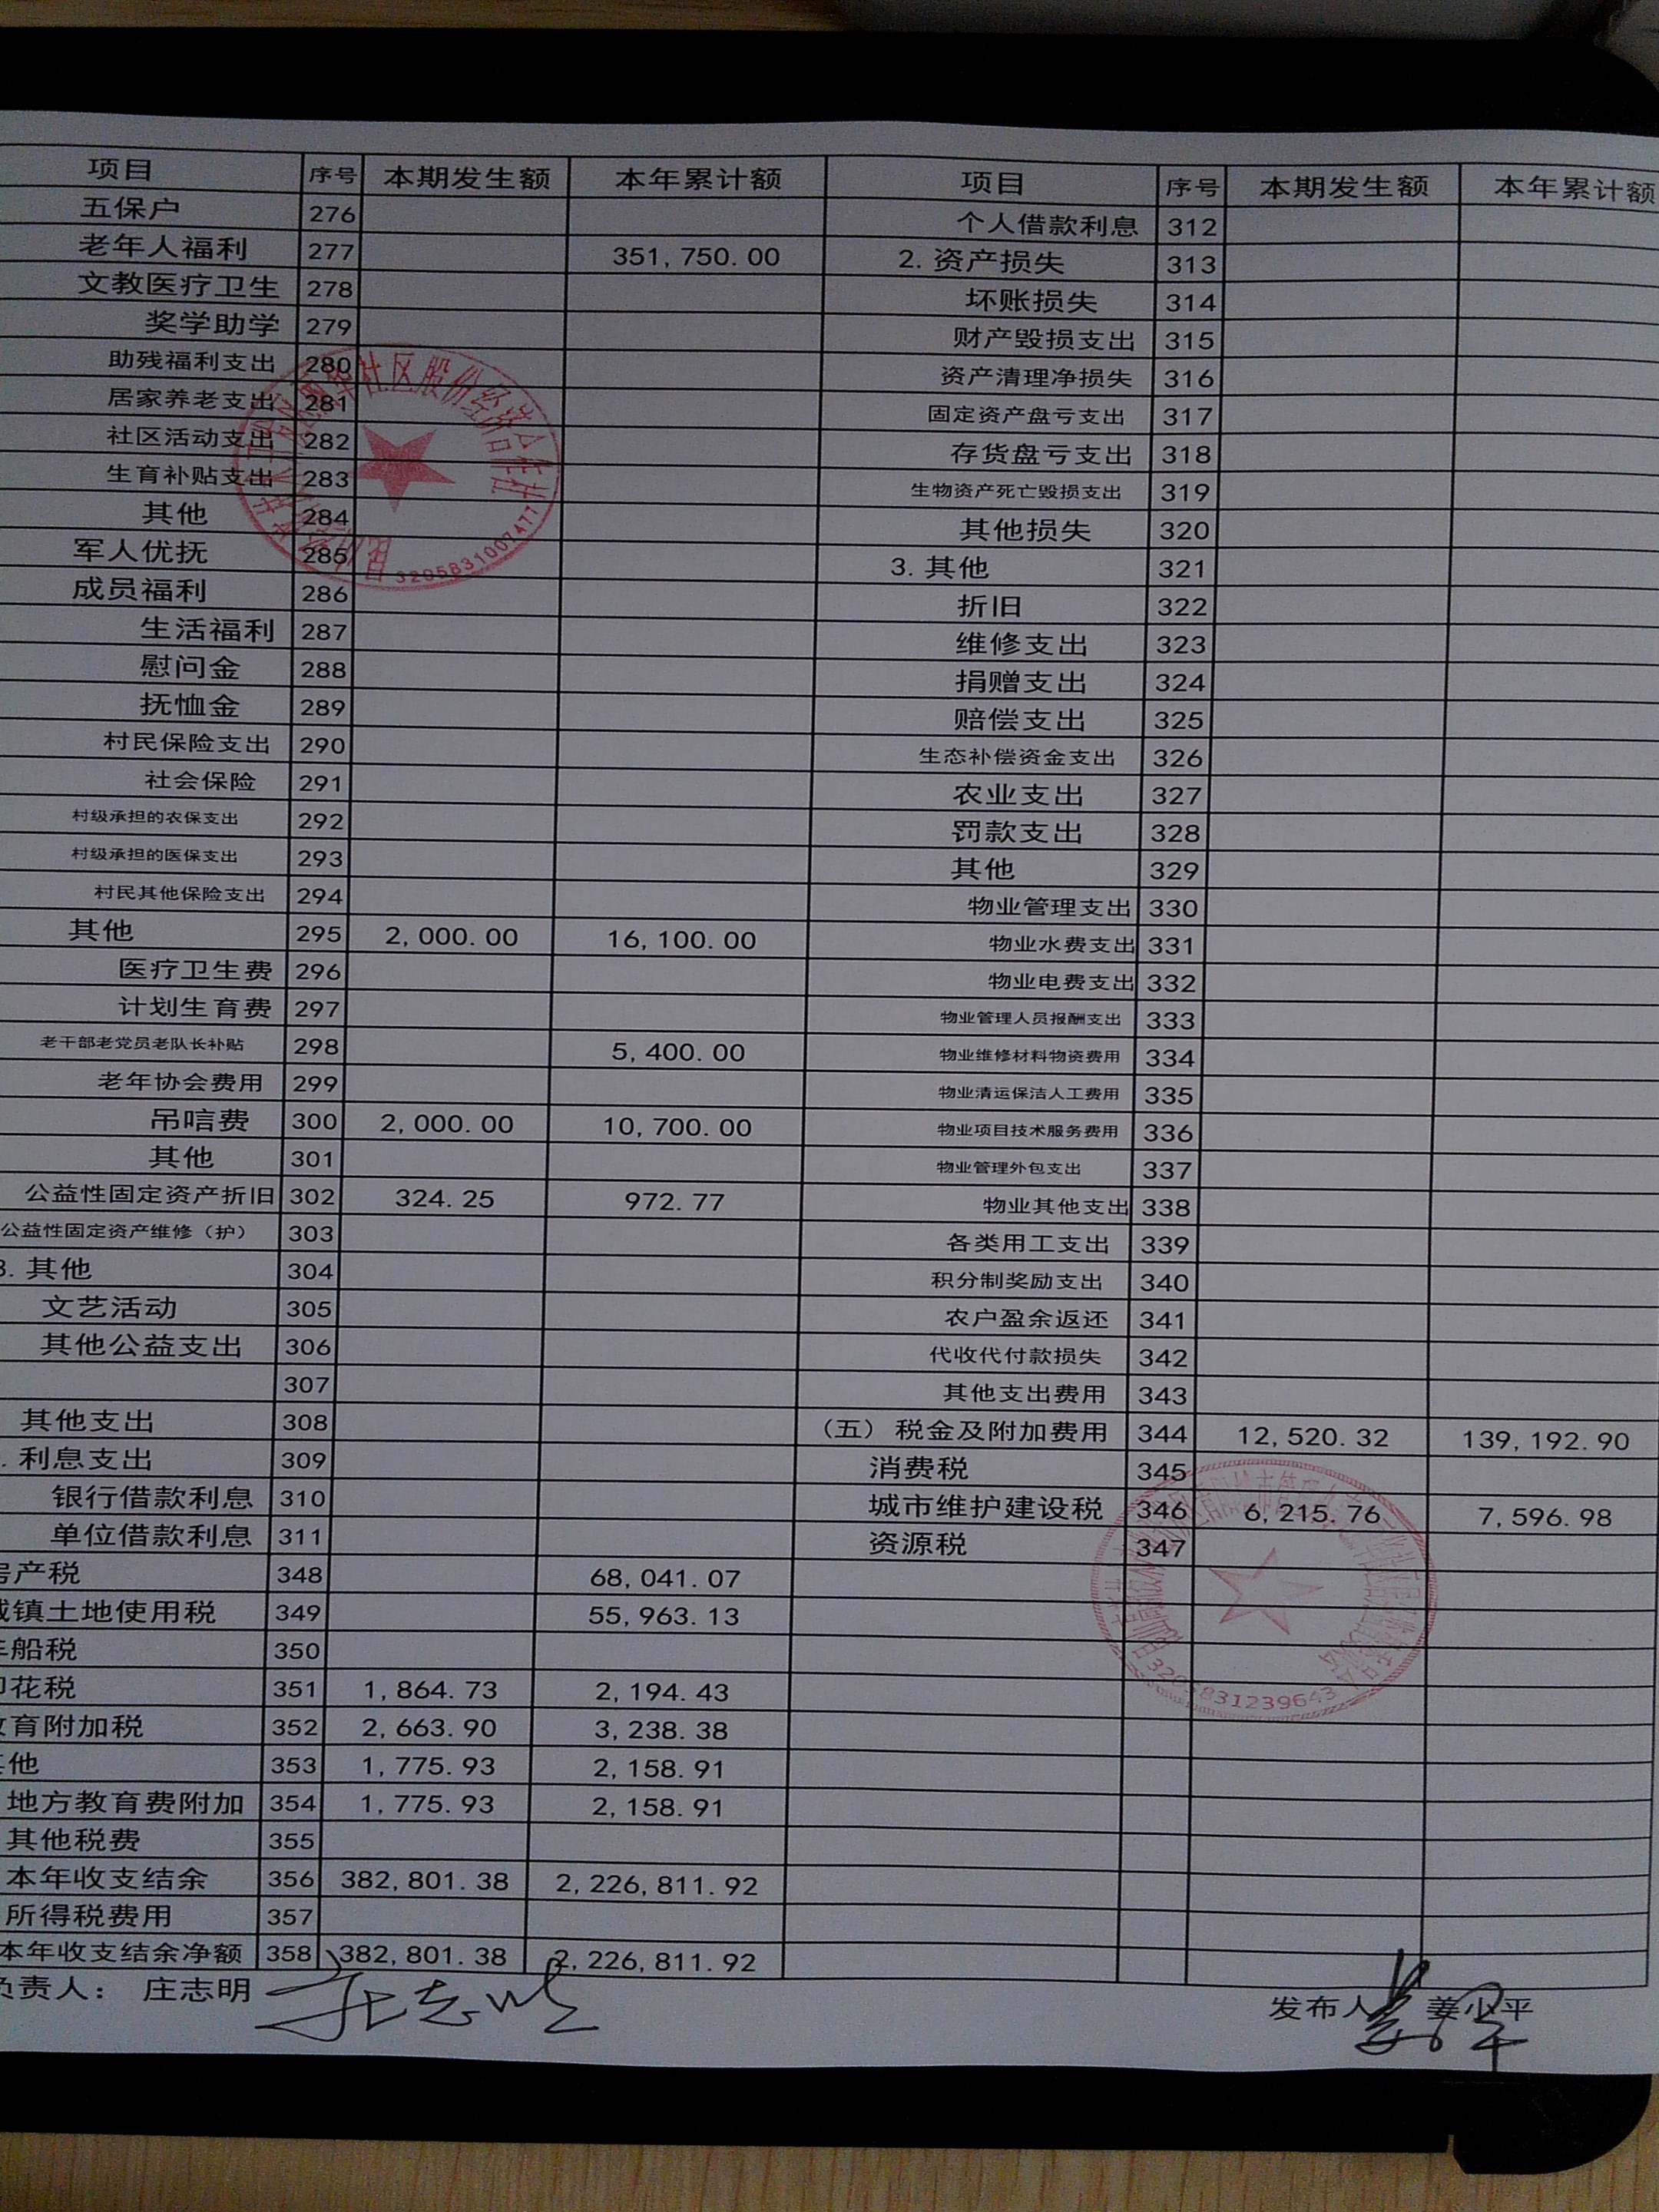 项目 序号 本期发生额 本年累计额 项目 序号 本期发生额 本年累计额
五保户 276 个人借款利息 312
老年人福利 277 351,750.00 2.资产损失 313
文教医疗卫生 278 坏账损失 314
奖学助学 279 财产毁损支出 315
助残福利支出 280 资产清理净损失 316
居家养老支出 281 固定资产盘亏支出 317
社区活动支出 282 存货盘亏支出 318
生育补贴支出 283 生物资产死亡毁损支出 319
其他 284 其他损失 320
军人优抚 285 3.其他 321
成员福利 286 折旧 322
生活福利 287 维修支出 323
慰问金 288 捐赠支出 324
抚恤金 289 赔偿支出 325
村民保险支出 290 生态补偿资金支出 326
社会保险 291 农业支出 327
村级承担的农保支出 292 罚款支出 328
村级承担的医保支出 293 其他 329
村民其他保险支出 294 物业管理支出 330
其他 295 2,000.00 16,100.00 物业水费支出 331
医疗卫生费 296 物业电费支出 332
计划生育费 297 物业管理人员报酬支出 333
老干部老党员老队长补贴 298 5,400.00 物业维修材料物资费用 334
老年协会费用 299 物业清运保洁人工费用 335
吊唁费 300 2,000.00 10,700.00 物业项目技术服务费用 336
其他 301 物业管理外包支出 337
公益性固定资产折旧 302 324.25 972.77 物业其他支出 338
公益性固定资产维修（护） 303 各类用工支出 339
3.其他 304 积分制奖励支出 340
文艺活动 305 农户盈余返还 341
其他公益支出 306 代收代付款损失 342
307 其他支出费用 343
其他支出 308 （五）税金及附加费用 344 12,520.32 139,192.90
. 利息支出 309 消费税 345
银行借款利息 310 城市维护建设税 346 6,215.76 7,596.98
单位借款利息 311 资源税 347
房产税 348 68,041.07
城镇土地使用税 349 55,963.13
车船税 350
印花税 351 1,864.73 2,194.43
教育附加税 352 2,663.90 3,238.38
其他 353 1,775.93 2,158.91
地方教育费附加 354 1,775.93 2,158.91
其他税费 355
本年收支结余 356 382,801.38 2,226,811.92
所得税费用 357
本年收支结余净额 358 382,801.38 2,226,811.92
负责人： 庄志明 庄志明 发布人 姜少平
社区股份经济合作社
3205831007477